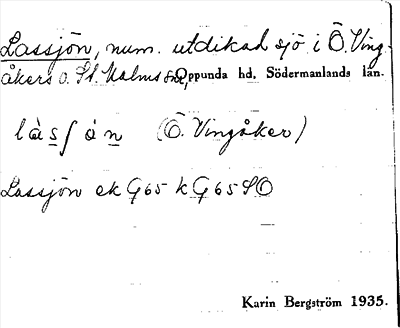 Lassjön, num. utdikad sjö i Ö. Ving-
åkers o. St. Malms snr, Oppunda hd, Södermanlands län.
làsʃȯn (Ö. Vingåker)
Lassjön ek G65 k G65 SO
Karin Bergström 1935.